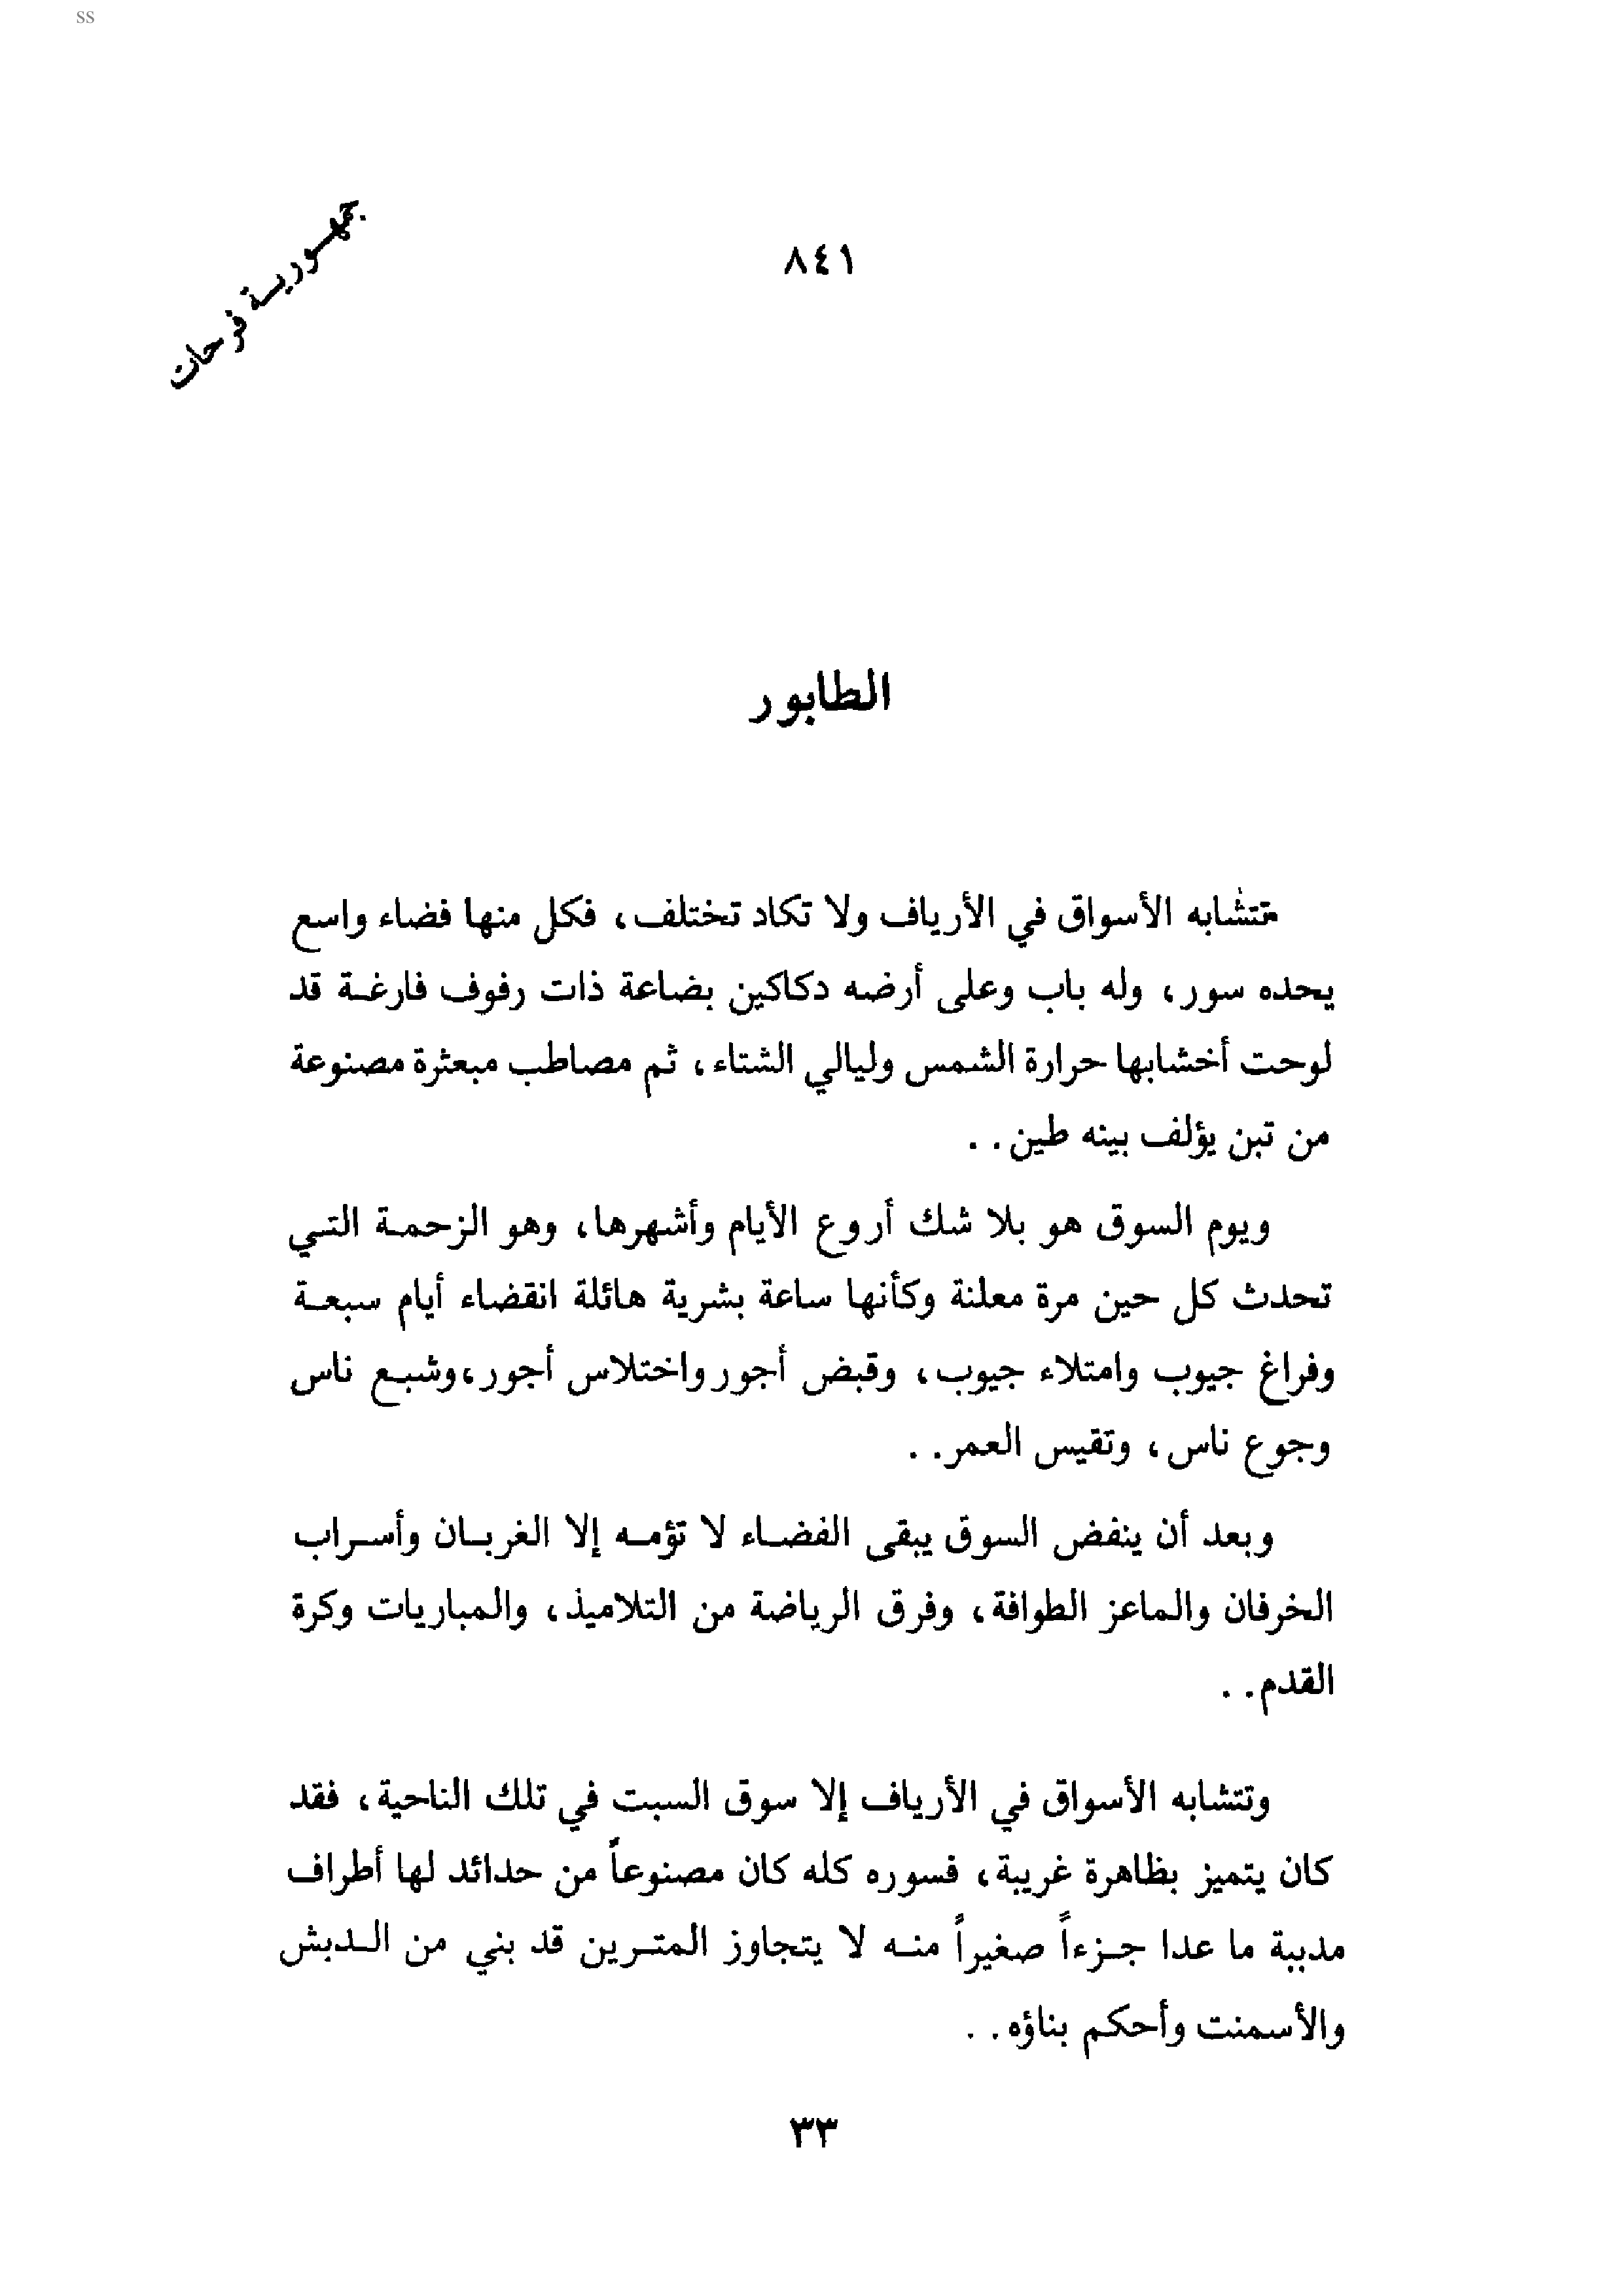 ss
جمهورية فرحات
٨٤١
الطابور
تتشابه الأسواق في الأرياف ولا تكاد تختلف، فكل منها فضاء واسع
يحده سور، وله باب وعلى أرضه دكاكين بضاعة ذات رفوف فارغة قد
لوحت أخشابها حرارة الشمس وليالي الشتاء، ثم مصاطب مبعثرة مصنوعة
من تبن يؤلف بينه طين..
ويوم السوق هو بلا شك أروع الأيام وأشهرها، وهو الزحمة التي
تحدث كل حين مرة معلنة وكأنها ساعة بشرية هائلة انقضاء أيام سبعة
وفراغ جيوب وامتلاء جيوب، وقبض أجور واختلاس أجور، وشبع ناس
وجوع ناس، وتقيس العمر..
وبعد أن ينفض السوق يبقى الفضاء لا تؤمه إلا الغربان وأسراب
الخرفان والماعز الطوافة، وفرق الرياضة من التلاميذ، والمباريات وكرة
القدم..
وتتشابه الأسواق في الأرياف إلا سوق السبت في تلك الناحية، فقد
كان يتميز بظاهرة غريبة، فسوره كله كان مصنوعاً من حدائد لها أطراف
مدببة ما عدا جزءاً صغيراً منه لا يتجاوز المترين قد بني من الدبش
والأسمنت وأحكم بناؤه..
٣٣